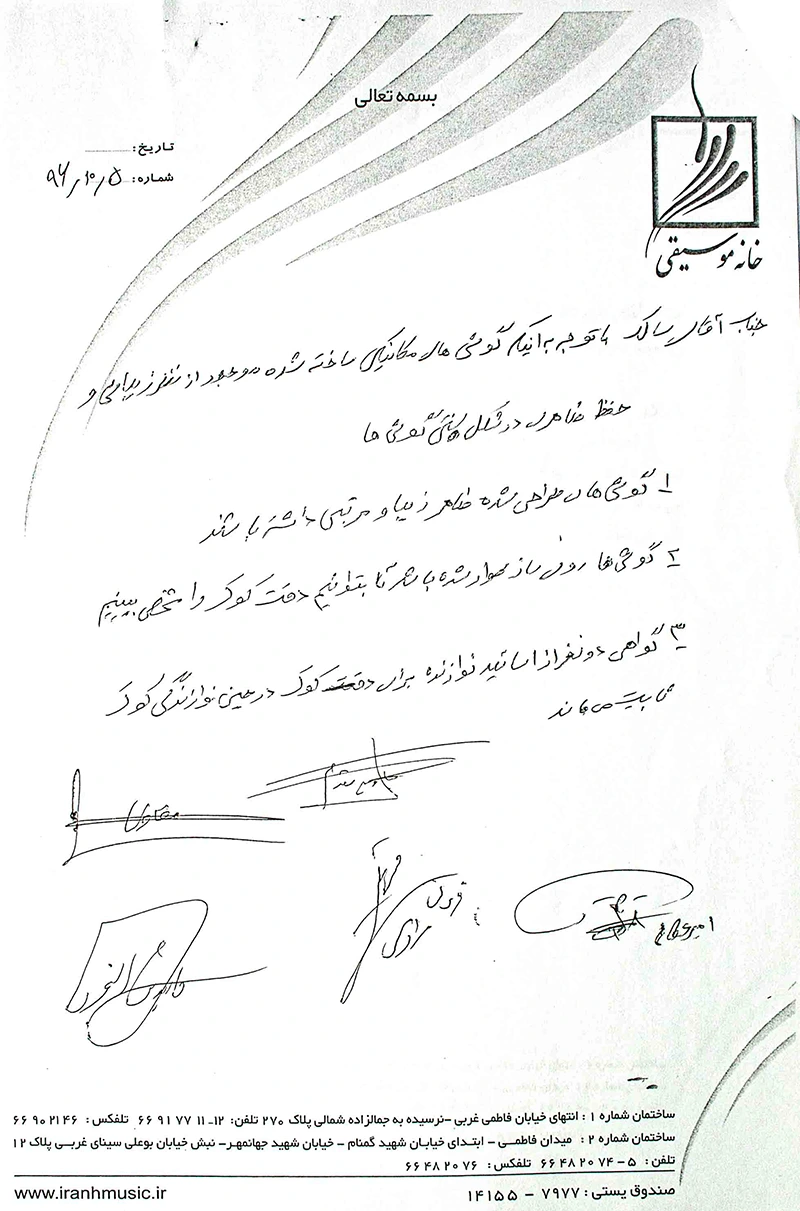 بسمه تعالی
تاریخ:
شماره: ۹۶٫۱۰٫۵
خانه موسیقی
جناب آقای سالک با توجه به اینکه گوشی های مکانیکی ساخته شده موجود از نظر زیبایی و
حفظ ظاهری در شکل گوشی ها
۱ گوشی های طراحی شده ظاهر زیبا و مرتبی داشته باشند
۲ گوشی ها روی ساز سوار شده باشد تا بتوانیم دقت کوک را شخصی ببینیم
۳ گواهی دو نفر از اساتید نوازنده برای دقت کوک در حین نوازندگی کوک
ثابت می ماند
امیر
ساختمان شماره ۱ : انتهای خیابان فاطمی غربی -نرسیده به جمالزاده شمالی پلاک ۲۷۰ تلفن: ۱۲-۱۱ ۷۷ ۹۱ ۶۶ تلفکس: ۴۶ ۲۱ ۹۰ ۶۶
ساختمان شماره ۲ : میدان فاطمی - ابتدای خیابان شهید گمنام - خیابان شهید جهانمهر- نبش خیابان بوعلی سینای غربی پلاک ۱۲
تلفن : ۵-۷۴ ۲۰ ۴۸ ۶۶ تلفکس: ۷۶ ۲۰ ۴۸ ۶۶
صندوق پستی : ۷۹۷۷ - ۱۴۱۵۵
www.iranhmusic.ir